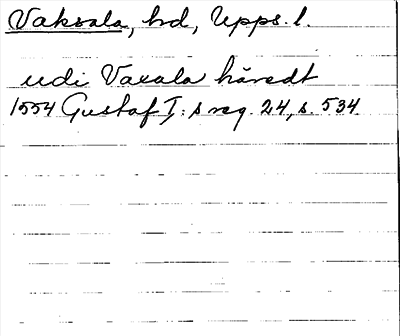 Vaksala, hd, Upps. l.
udi Vaxala häredt
1554 Gustaf I:s reg. 24, s. 534